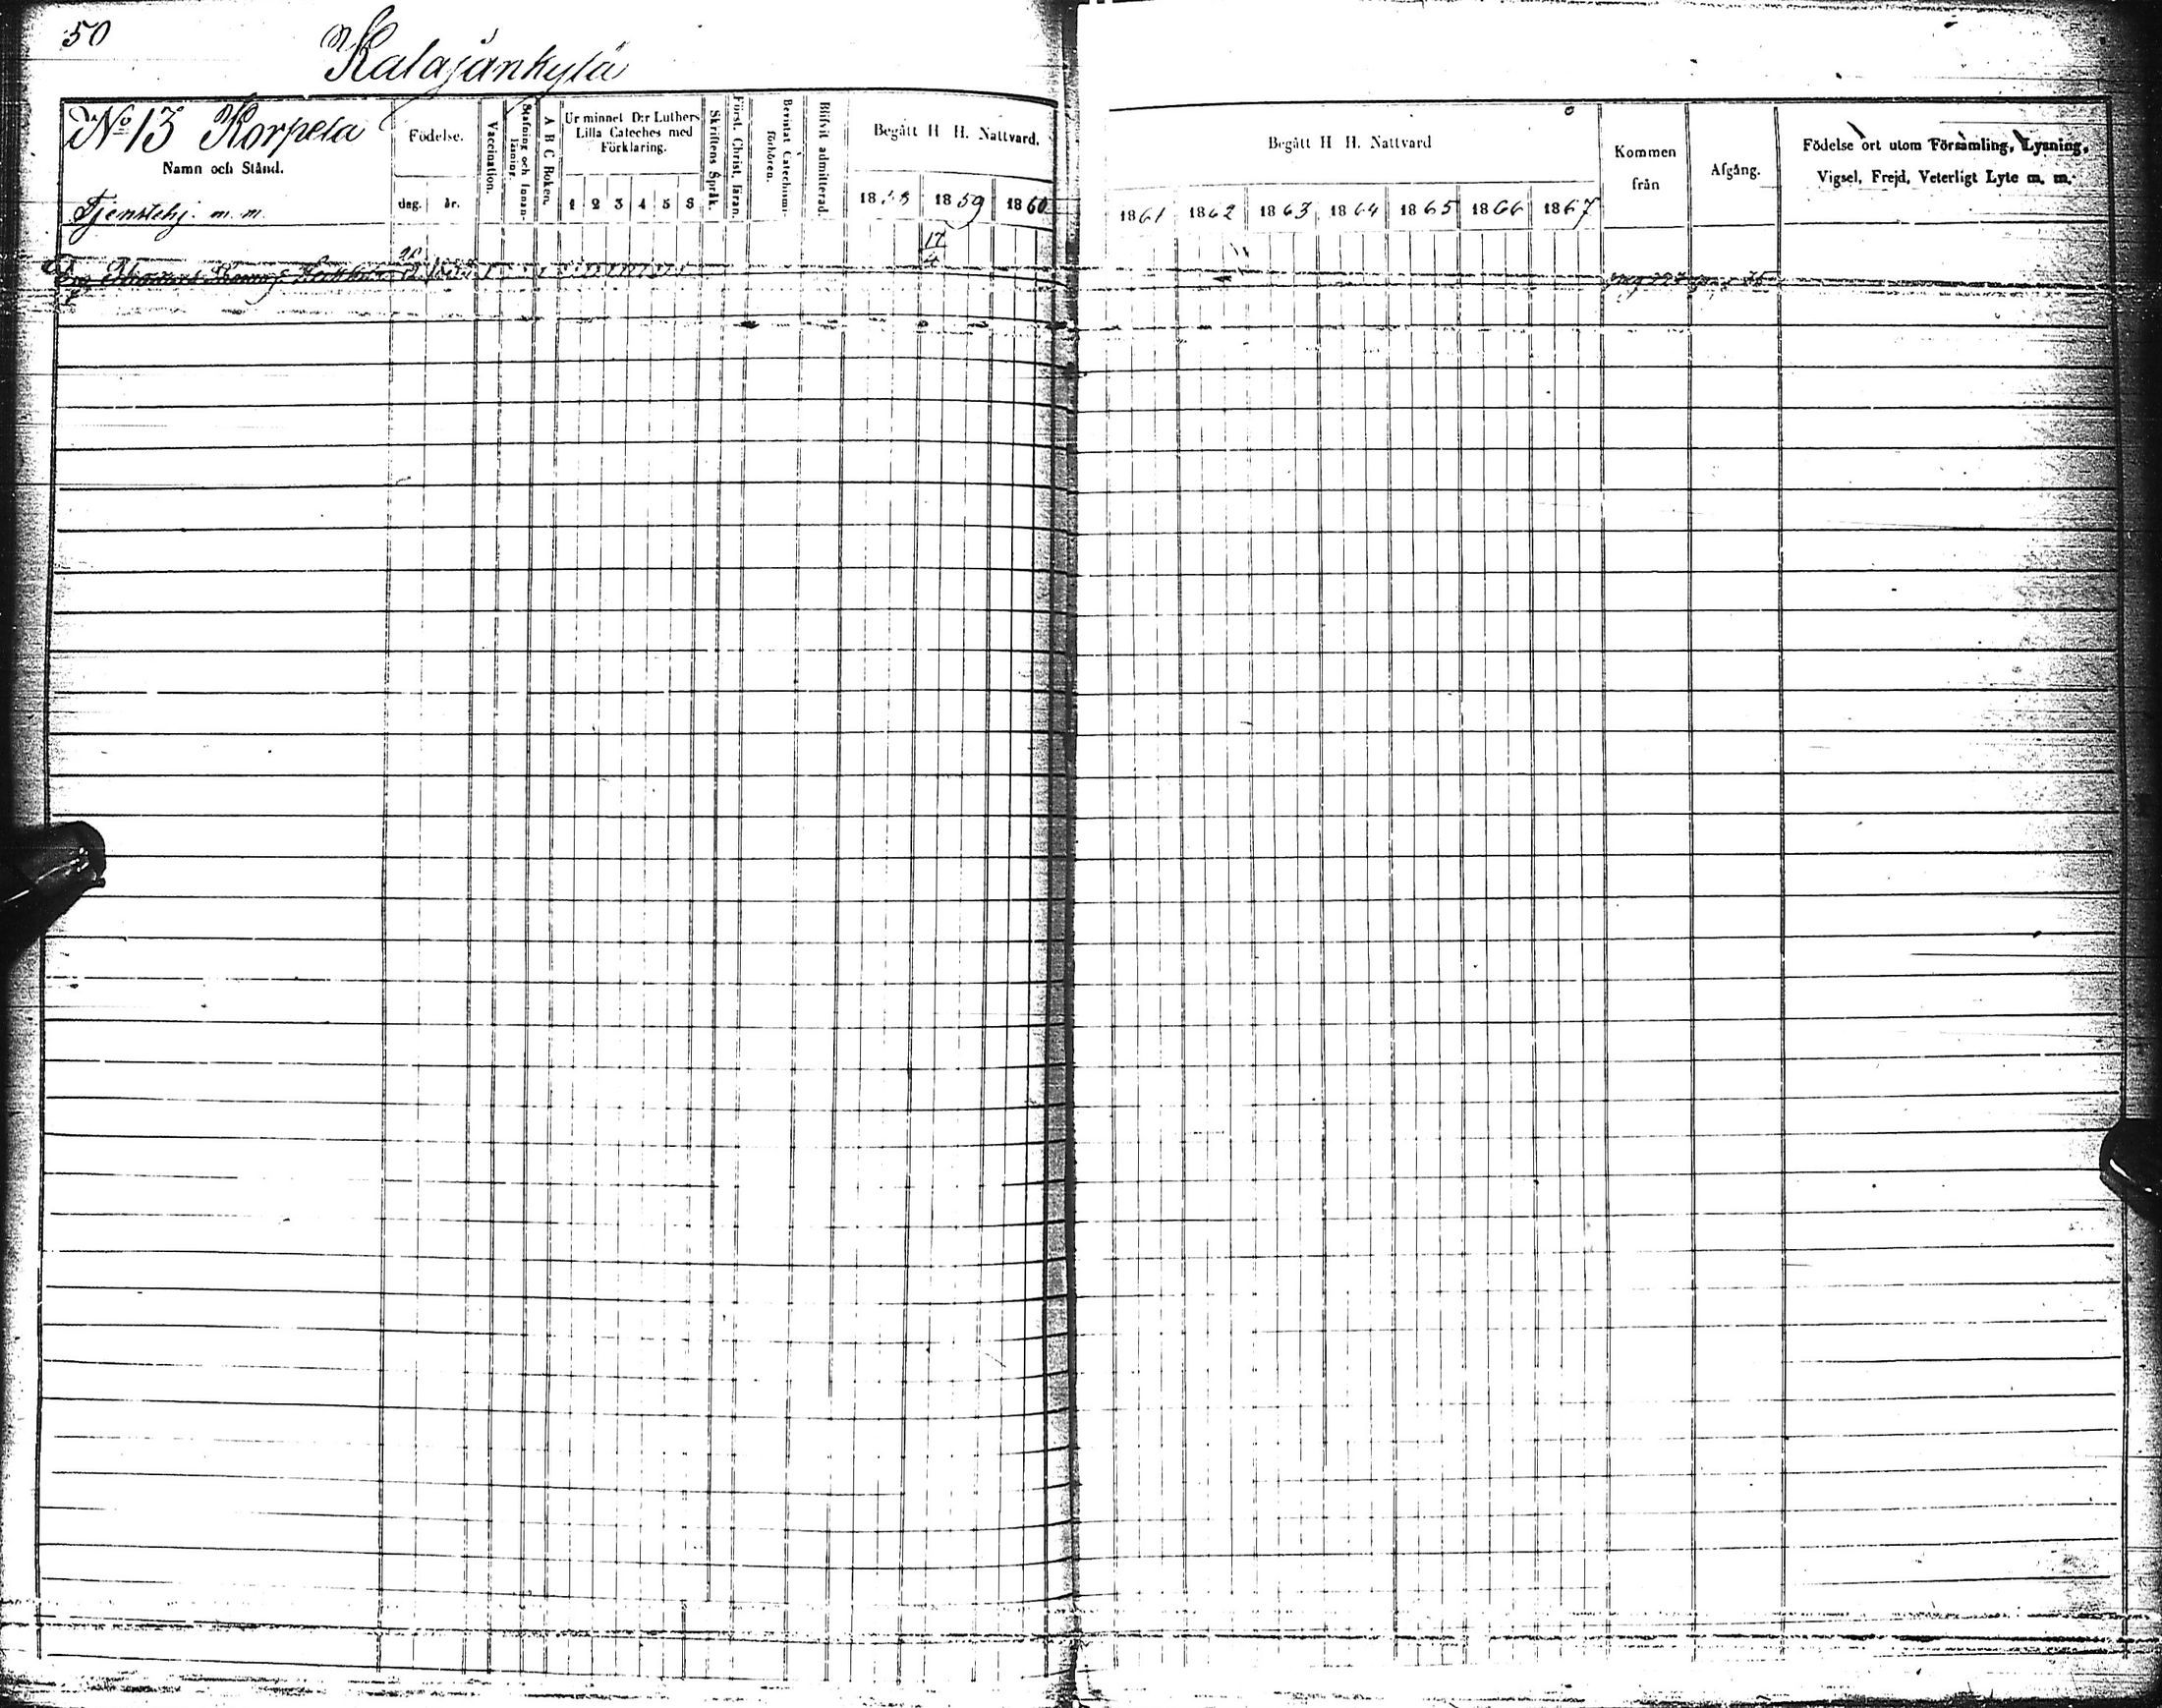 50
Kalajänkylä
No 13 Korpela
Namn och Stånd.
Tjenstehj. m. m.
Födelse.
dag. år.
Vaccination.
Stafning och Innanläsning.
A B C Boken.
Ur minnet D:r Luthers
Lilla Cateches med
Förklaring.
1 2 3 4 5 6
Skriftens Språk.
Först. Christ. läran.
Bevistat Catechismiförhören.
Blifvit admitterad.
Begått H H. Nattvard.
18 1859 1860
17
4
Begått H H. Nattvard
1861 1862 1863 1864 1865 1866 1867
Kommen
från
Afgång.
Födelse ort utom Församling, Lysning,
Vigsel, Frejd, Veterligt Lyte m. m.